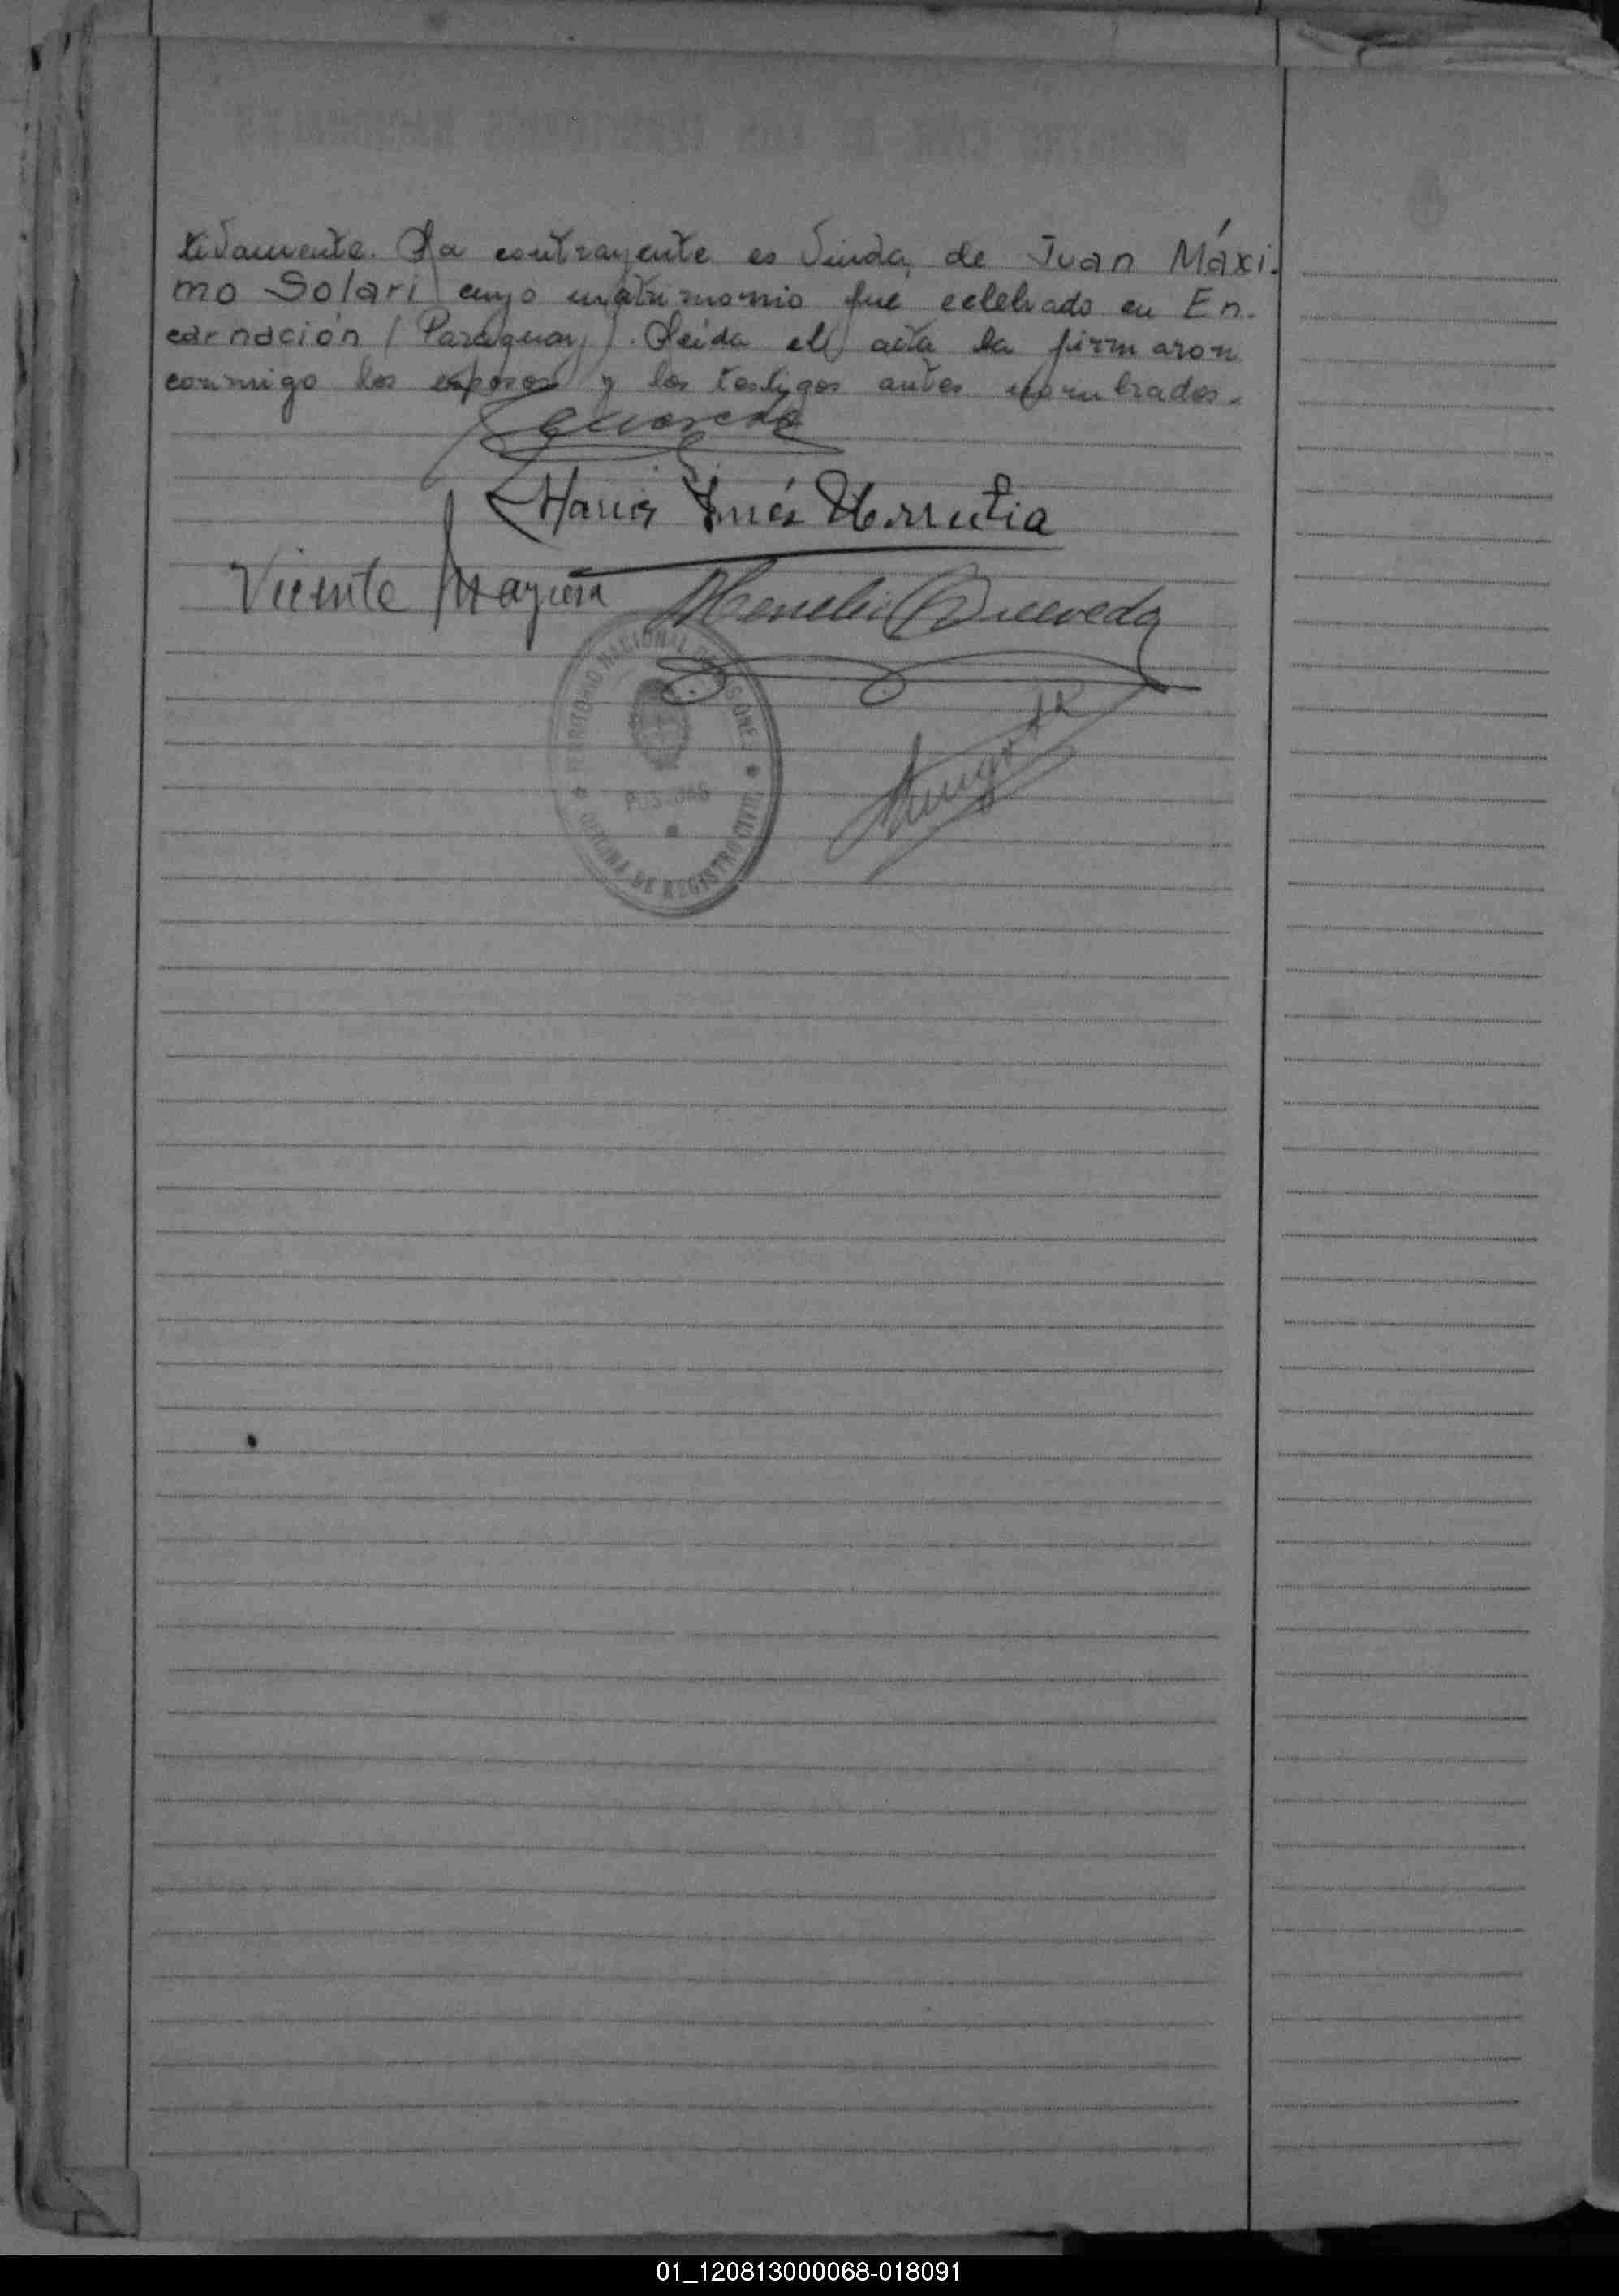 tivamente. La contrayente es viuda, de Juan Máxi-
mo Solari cuyo matrimonio fue celebrado en En-
carnación (Paraguay). Leída el acta la firmaron
conmigo los esposos y los testigos antes nombrados.
María Inés Urrutia
Vicente
TERRITORIO NACIONAL DE MISIONES
POSADAS
OFICINA DE REGISTRO CIVIL
01_120813000068-018091